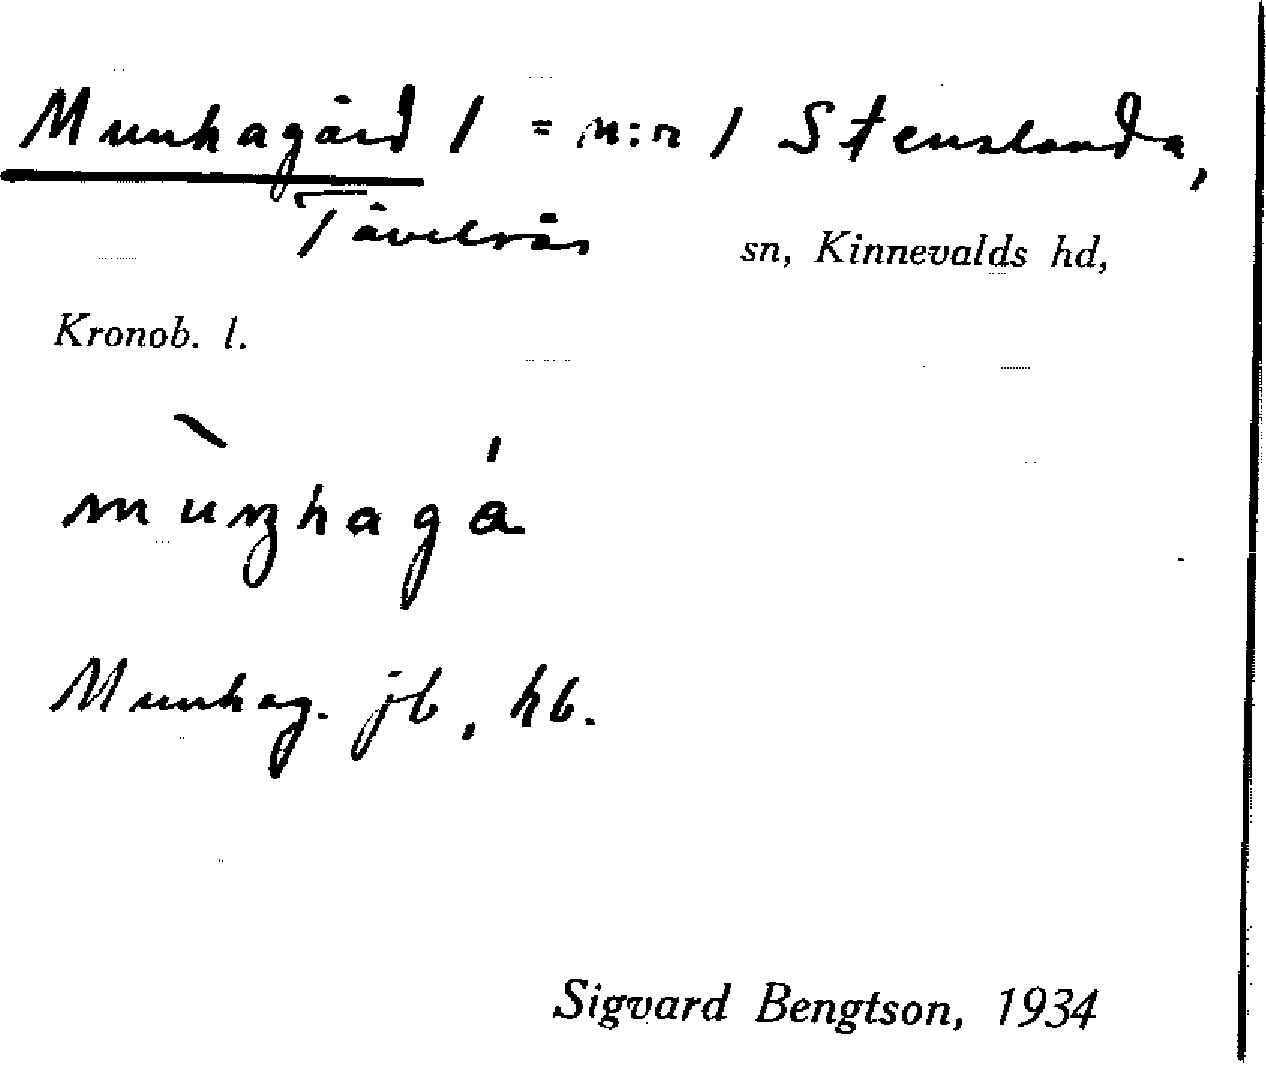 Munkagård 1 = n:r 1 Stenslanda,
Tävelsås sn, Kinnevalds hd,
Kronob. l.
mùŋkagá
Munkag. jb, hb.
Sigvard Bengtson, 1934